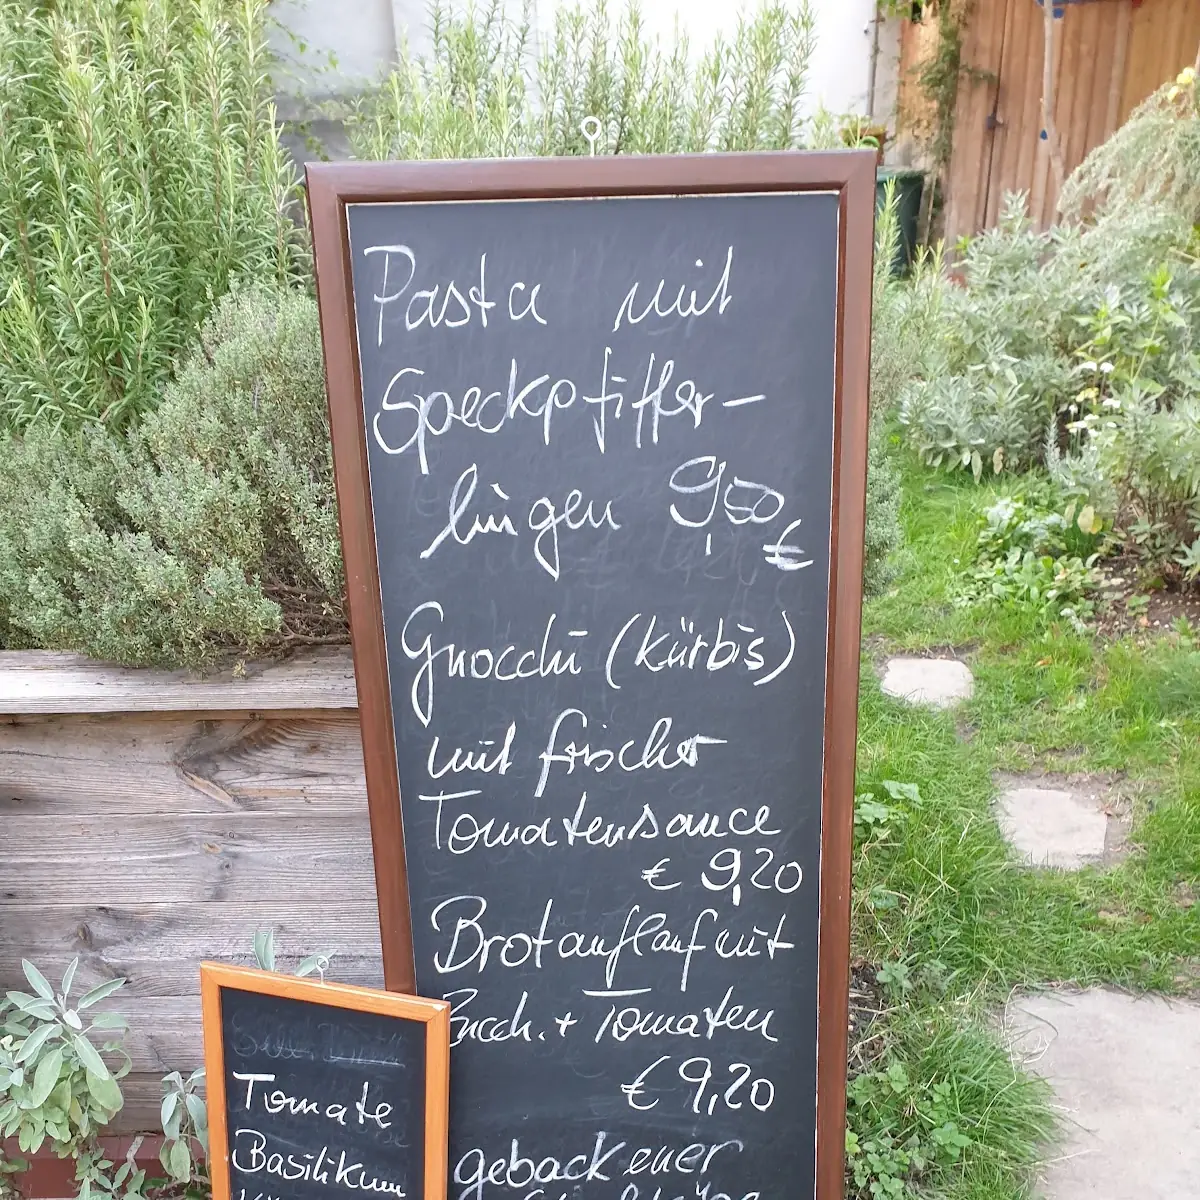 Pasta mit
Speckpfiffer-
lingen 9,50
€
Gnocchi (Kürbis)
mit frischer
Tomatensauce
€ 9,20
Brotauflauf mit
Zucch. + Tomaten
€ 9,20
gebackener
Tomate
Basilikum